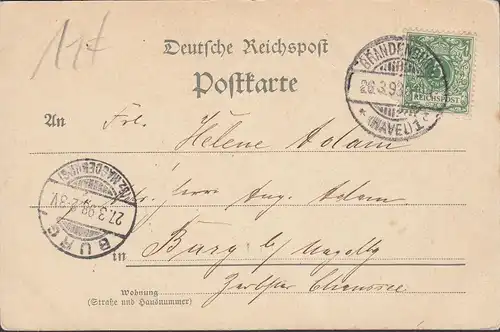 Deutsche Reichspost
BRANDENBURG
26.3.98
(HAVEL)
REICHSPOST
Postkarte
An Frl. Helene Adam
(BZ. MAGDEBURG)
27.3.98
BURG
Herr Aug. Adam
in Burg b/ Magdbg
Zerbster Chaussee
Wohnung
(Straße und Hausnummer)